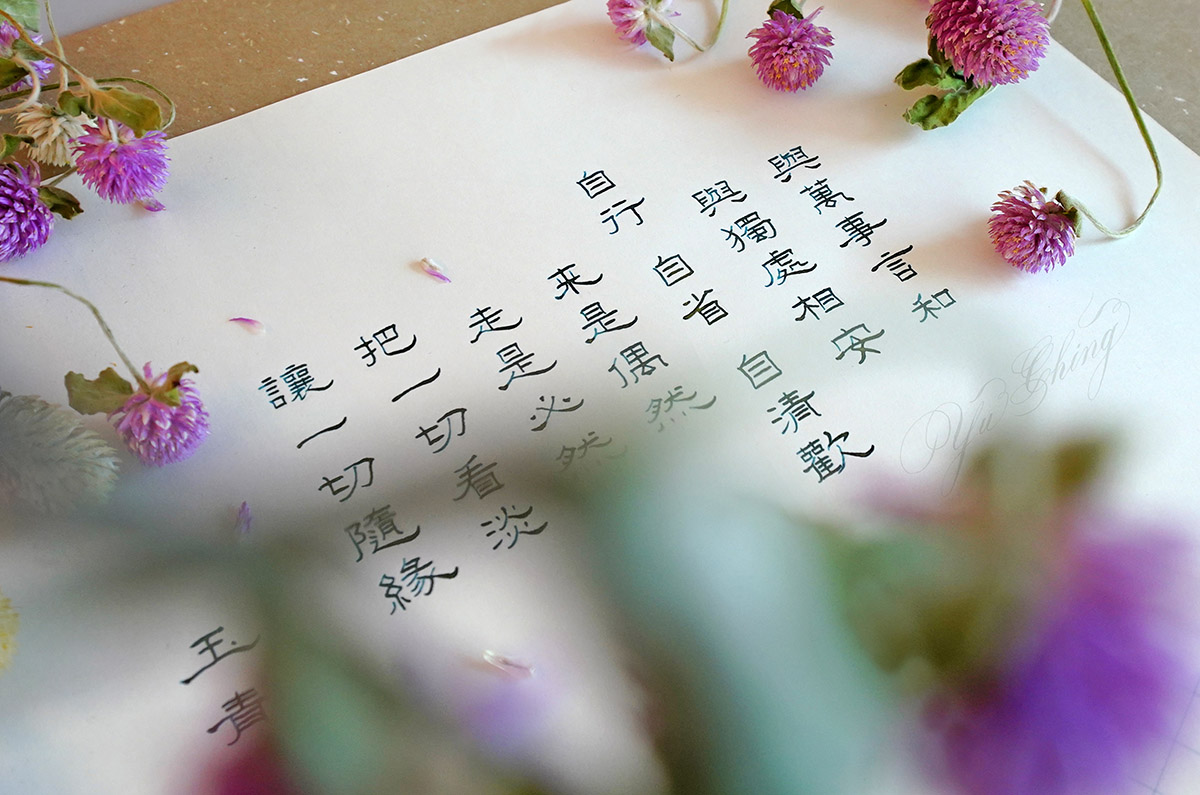 與萬事言和
與獨處相安
自行 自省 自清歡
来是偶然
走是必然
把一切看淡
讓一切隨緣
玉青
Yu Ching